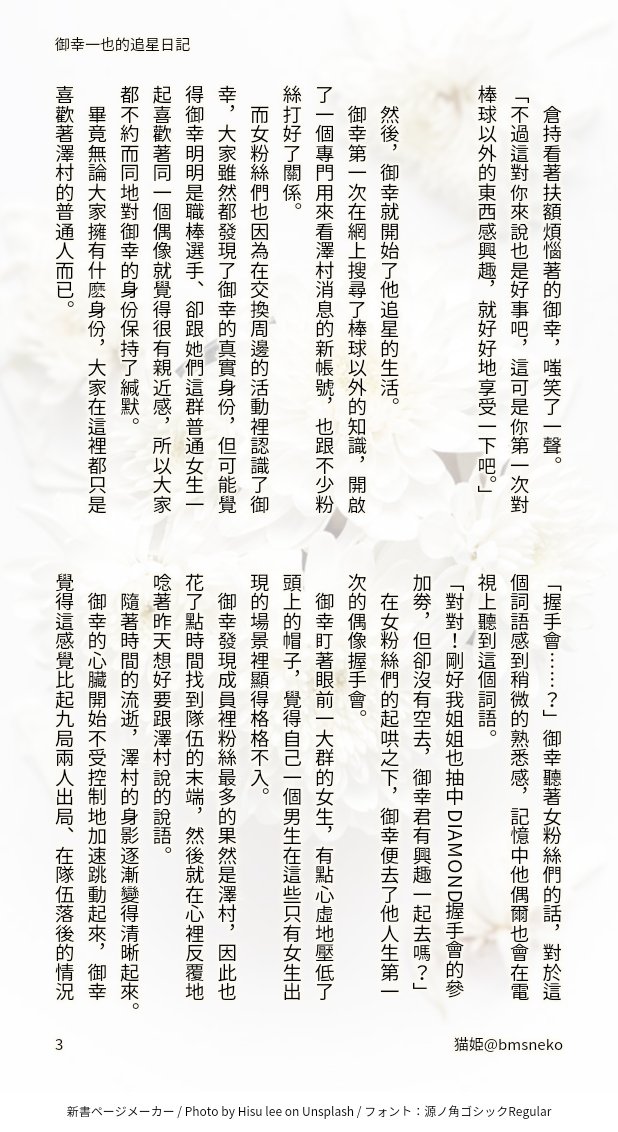 御幸一也的追星日記
　倉持看著扶額煩惱著的御幸，嗤笑了一聲。
「不過這對你來說也是好事吧，這可是你第一次對
棒球以外的東西感興趣，就好好地享受一下吧。」
　然後，御幸就開始了他追星的生活。
　御幸第一次在網上搜尋了棒球以外的知識，開啟
了一個專門用來看澤村消息的新帳號，也跟不少粉
絲打好了關係。
　而女粉絲們也因為在交換周邊的活動裡認識了御
幸，大家雖然都發現了御幸的真實身份，但可能覺
得御幸明明是職棒選手、卻跟她們這群普通女生一
起喜歡著同一個偶像就覺得很有親近感，所以大家
都不約而同地對御幸的身份保持了緘默。
　畢竟無論大家擁有什麽身份，大家在這裡都只是
喜歡著澤村的普通人而已。
「握手會⋯⋯？」御幸聽著女粉絲們的話，對於這
個詞語感到稍微的熟悉感，記憶中他偶爾也會在電
視上聽到這個詞語。
「對對！剛好我姐姐也抽中 DIAMOND握手會的參
加券，但卻沒有空去，御幸君有興趣一起去嗎？」
　在女粉絲們的起哄之下，御幸便去了他人生第一
次的偶像握手會。
　御幸盯著眼前一大群的女生，有點心虛地壓低了
頭上的帽子，覺得自己一個男生在這些只有女生出
現的場景裡顯得格格不入。
　御幸發現成員裡粉絲最多的果然是澤村，因此也
花了點時間找到隊伍的末端，然後就在心裡反覆地
唸著昨天想好要跟澤村說的說語。
　隨著時間的流逝，澤村的身影逐漸變得清晰起來。
　御幸的心臟開始不受控制地加速跳動起來，御幸
覺得這感覺比起九局兩人出局、在隊伍落後的情況
3
猫姫@bmsneko
新書ページメーカー / Photo by Hisu lee on Unsplash / フォント：源ノ角ゴシックRegular